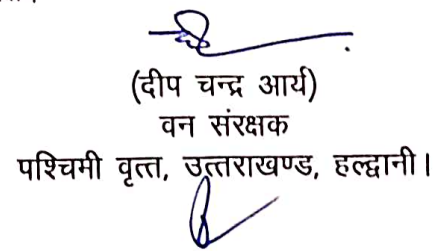 (दीप चन्द्र आर्य)
वन संरक्षक
पश्चिमी वृत्त, उत्तराखण्ड, हल्द्वानी।